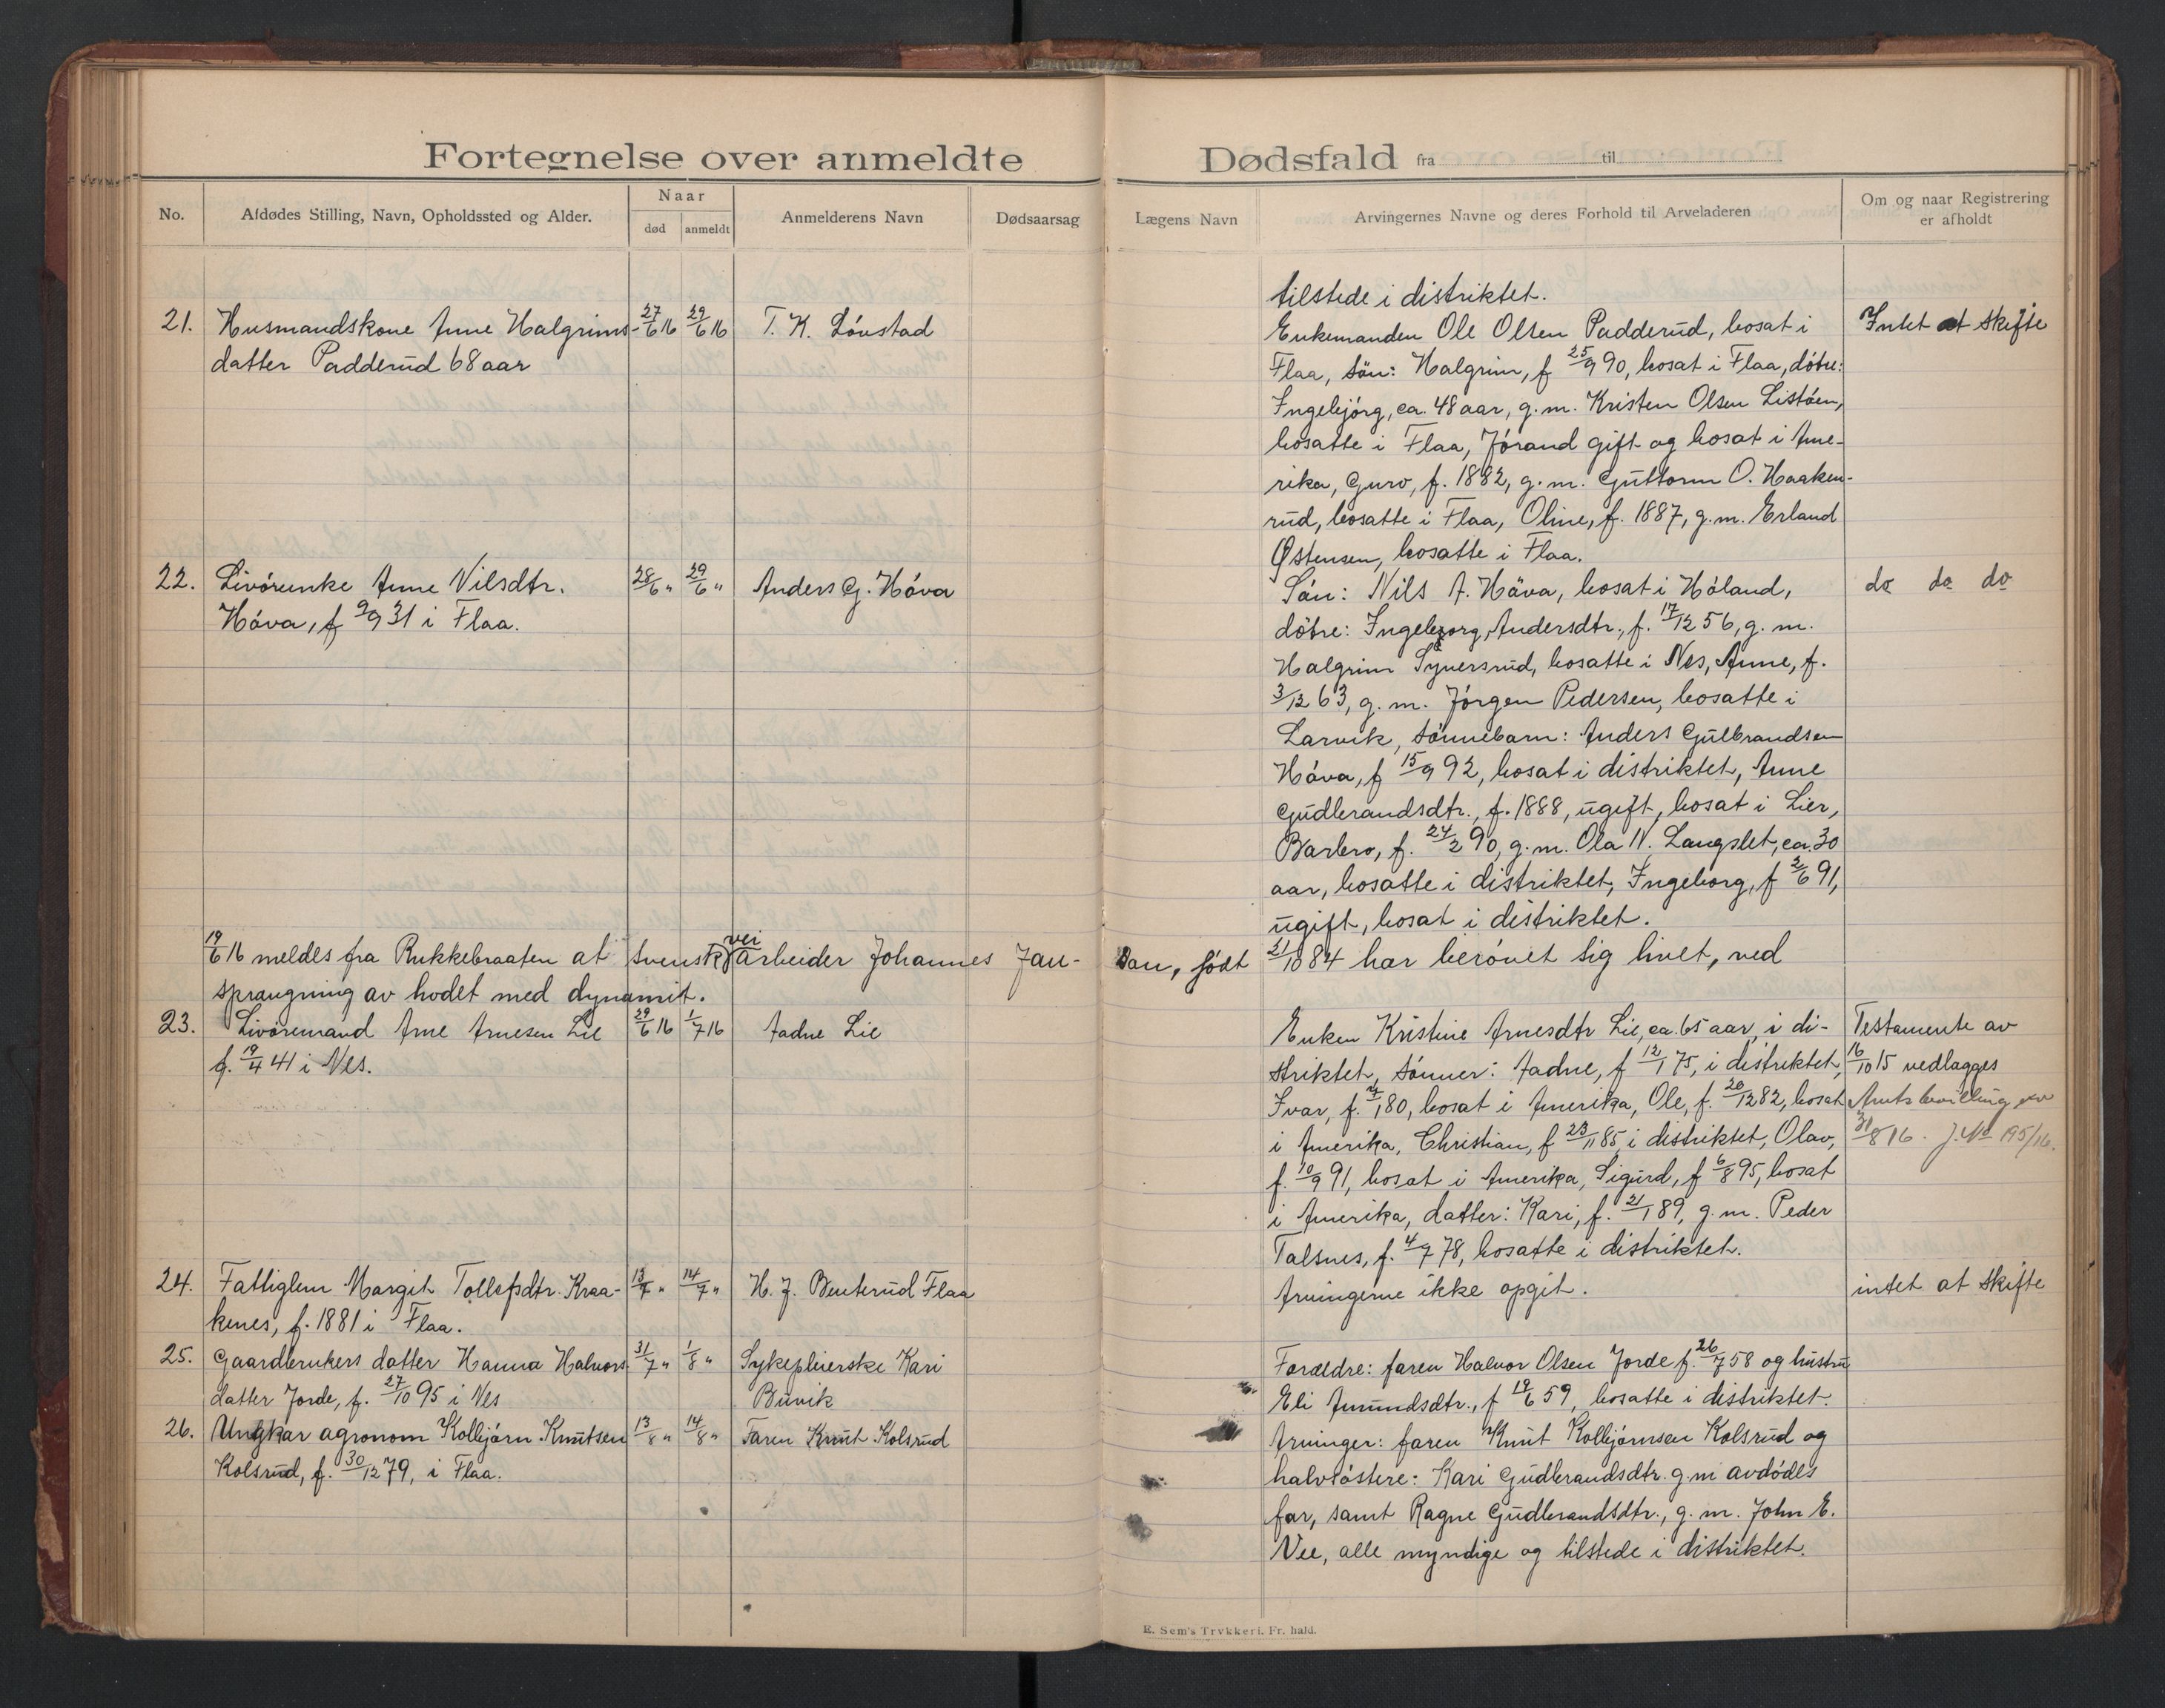 Fortegnelse over anmeldte Dødsfald fra til
No.
Afdødes Stilling, Navn, Opholdssted og Alder.
Naar
død
anmeldt
Anmelderens Navn
Dødsaarsag
Lægens Navn
Arvingernes Navne og deres Forhold til Arveladeren
Om og naar Registrering
er afholdt
tilstede i distriktet.
21. Husmandskone Anne Halgrims-
datter Padderud 68 aar
27/6 16
29/6 16
T. K. Lövstad
Enkemanden Ole Olsen Padderud, bosat i
Flaa, sön: Halgrim, f 25/9 90, bosat i Flaa, döbre:
Ingebjörg, ca. 48 aar, g.m. Kristen Olsen Listöen,
bosatte i Flaa, Jörand gift og bosat i Ame-
rika, Guro, f. 1882, g.m. Guttorm O. Haaken-
rud, bosatte i Flaa, Oline, f. 1887, g.m. Erland
Østensen, bosatte i Flaa.
Intet at skifte
22. Livörenke Anne Nilsdtr.
Höva, f 9/9 31 i Flaa.
28/6 "
29/6 "
Anders G. Höva
Sön: Nils A. Höva, bosat i Höland,
döbre: Ingeborg Andersdtr., f. 17/12 56, g.m.
Halgrim Syversrud, bosatte i Nes, Anne, f.
3/12 63, g.m. Jörgen Pedersen, bosatte i
Larvik, sönnebarn: Anders Gulbrandsen
Höva, f 15/9 92, bosat i distriktet, Anne
Gudbrandsdtr., f. 1888, ugift, bosat i Lier,
Barbro, f. 24/2 90, g.m. Ola N. Langslet, ca. 30
aar, bosatte i distriktet, Ingeborg, f 2/6 91,
ugift, bosat i distriktet.
do do do
19/6 16 meldes fra Rukkebraaten at svensk veiarbeider Johannes Jan-san, födt 21/10 84 har berövet sig livet, ved
sprængning av hodet med dynamit.
23. Livöremand Arne Arnesen Lie
f. 19/4 41 i Nes.
29/6 16
1/7 16
Aadne Lie
Enken Kristine Arnesdtr Lie, ca. 65 aar, i di-
striktet, sönner: Aadne, f 12/1 75, i distriktet,
Ivar, f. 7/1 80, bosat i Amerika, Ole, f. 20/12 82, bosat
i Amerika, Christian, f 23/11 85 i distriktet, Olav,
f. 10/9 91, bosat i Amerika, Sigurd, f 6/8 95, bosat
i Amerika, datter: Kari, f. 21/1 89, g.m. Peder
Talsnes, f. 4/7 78, bosatte i distriktet.
Testamente av
16/10 15 vedlagges
Amtsbevilling av
31/8 16. J. No 195/16.
24. Fattiglem Margit Tollefsdtr. Kraa-
kenes, f. 1881 i Flaa.
13/7 "
14/7 "
H. J. Benterud Flaa
Arvingerne ikke opgit.
intet at skifte
25. Gaardbrukers datter Hanna Halvors-
datter Jorde, f. 27/10 95 i Nes
31/7 "
1/8 "
Sykepleierske Kari
Buvik
Forældre: faren Halvor Olsen Jorde f. 26/7 58 og hustru
Eli Amundsdtr., f 19/6 59, bosatte i distriktet.
26. Ungkar agronom Kolbjörn Knutsen
Kolsrud, f. 30/12 79, i Flaa.
13/8 "
14/8 "
Faren Knut Kolsrud
Arvinger: faren Knut Kolbjörnsen Kolsrud og
halvsöstere: Kari Gudbrandsdtr. g.m avdödes
far, samt Ragne Gudbrandsdtr., g.m. John E.
Vee, alle myndige og tilstede i distriktet.
E. Sem's Trykkeri, Fr. hald.